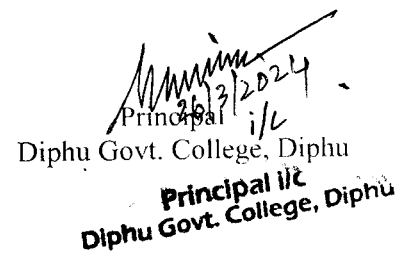 26/3/2024
Principal i/c
Diphu Govt. College, Diphu
Principal i/c
Diphu Govt. College, Diphu